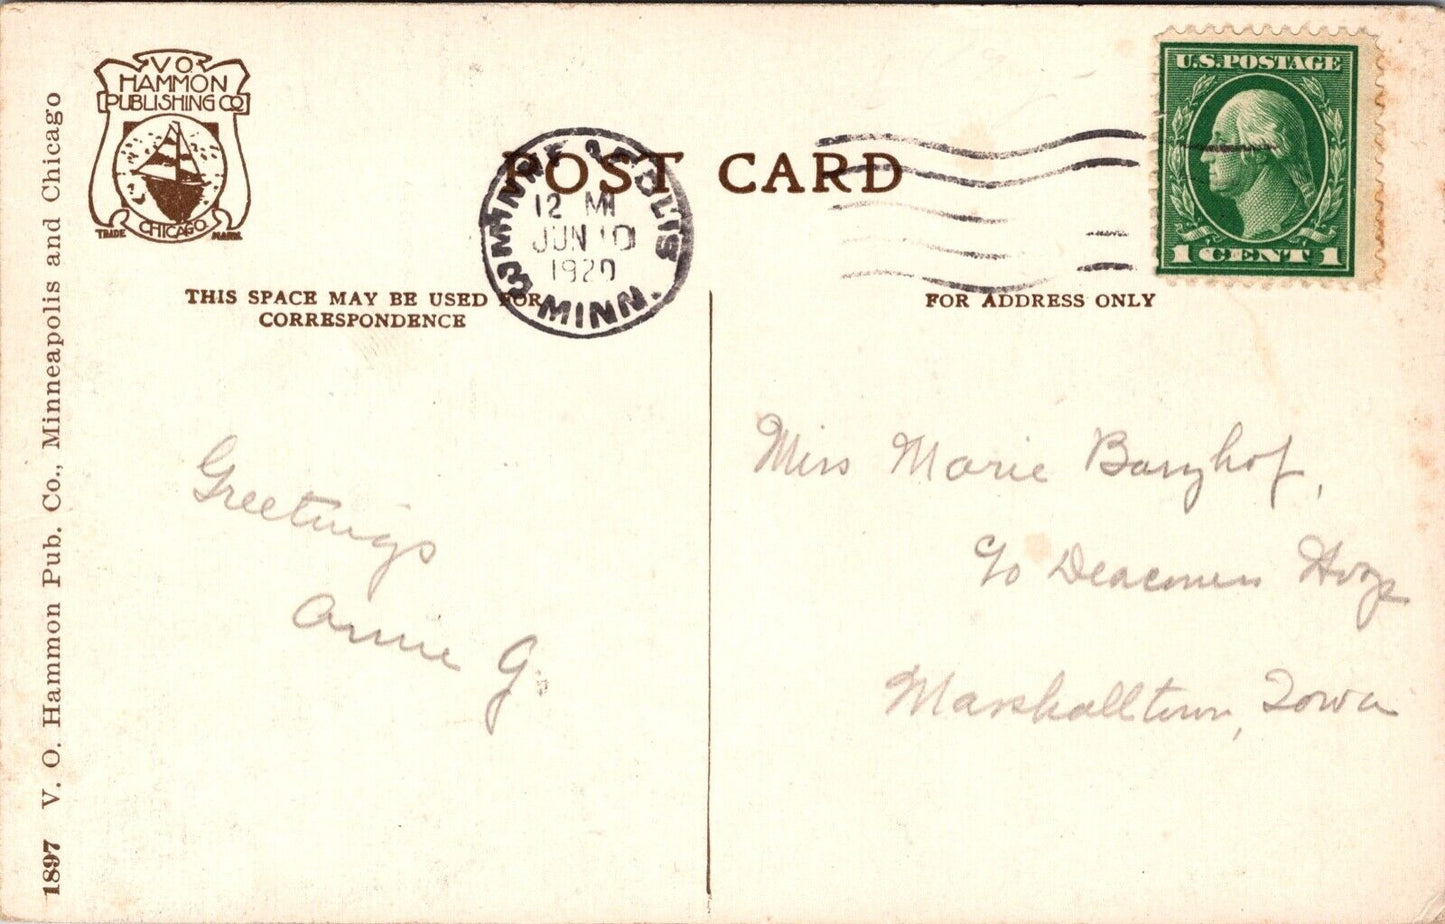 V. O.
HAMMON
PUBLISHING CO.
CHICAGO.
TRADE MARK.
POST CARD
MINNEAPOLIS
12 M
JUN 10
1920
MINN.
U.S. POSTAGE
1 CENT 1
THIS SPACE MAY BE USED FOR
CORRESPONDENCE
FOR ADDRESS ONLY
Greetings
Annie G.
Miss Marie
c/o Deacones Hosp
Marshalltown, Iowa
1897 V. O. Hammon Pub. Co., Minneapolis and Chicago